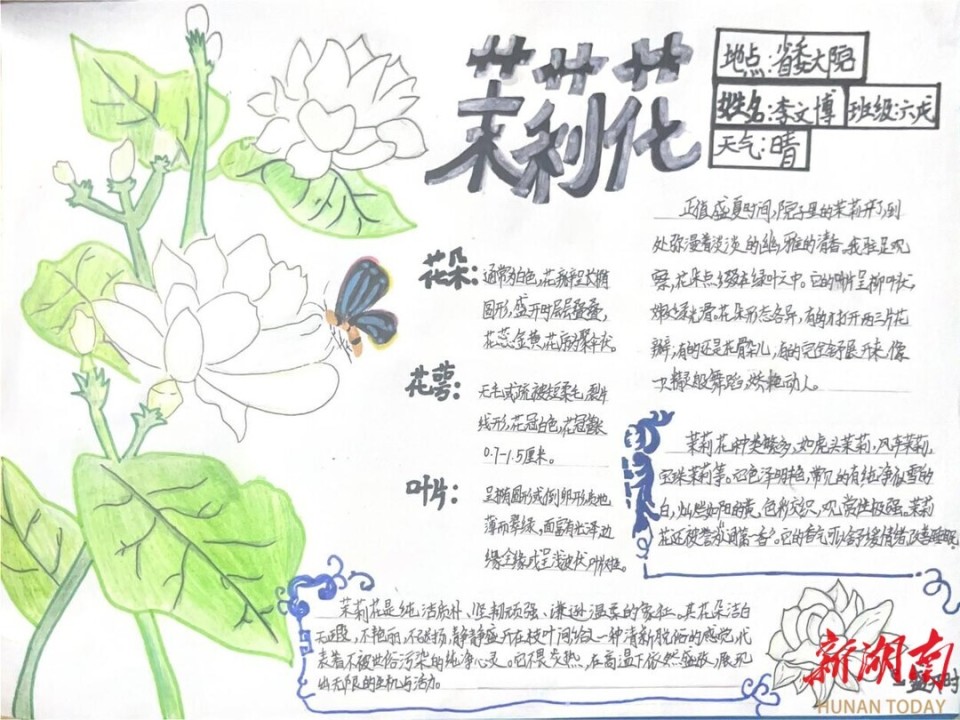 茉莉花
地点:省委大院
姓名:李文博
班级:六戊
天气:晴
正值盛夏时间,院子里的茉莉开了,到
处弥漫着淡淡的幽雅的清香。我驻足观
察,花朵点缀在绿叶中。它的叶片呈柳叶状,
翠绿光滑。花朵形态各异,有的才打开两三片花
瓣,有的还是花骨朵儿,有的完全舒展开来,像
翩翩起舞蹈,娇艳动人。
花朵:
通常为白色,花瓣呈长椭
圆形,盛开时层层叠叠,
花蕊金黄,花后
花萼:
无毛或疏被短柔毛,裂片
线形,花冠白色,花冠管长
0.7-1.5厘米。
叶片:
呈椭圆形或倒卵形,质地
薄而翠绿,面富有光泽,边
缘全缘或呈浅波状
茉莉花种类繁多,如虎头茉莉,风车茉莉,
宝珠茉莉等。它色泽明艳,常见的有纯净似雪的
白,灿烂如阳的黄,色彩交织,观赏性极强。茉莉
花还被誉为"人间第一香"。它的香气可以舒缓情绪,改善睡眠
茉莉花是纯洁质朴、坚韧顽强、谦逊温柔的象征。其花朵洁白
无瑕,不艳丽,不张扬,静静盛开在枝叶间,给人一种清新脱俗的感觉,代
表着不被世俗污染的纯净心灵。它不畏炎热,在高温下依然盛放,展现
出无限的生机与活力。
盛开时
新湖南
HUNAN TODAY